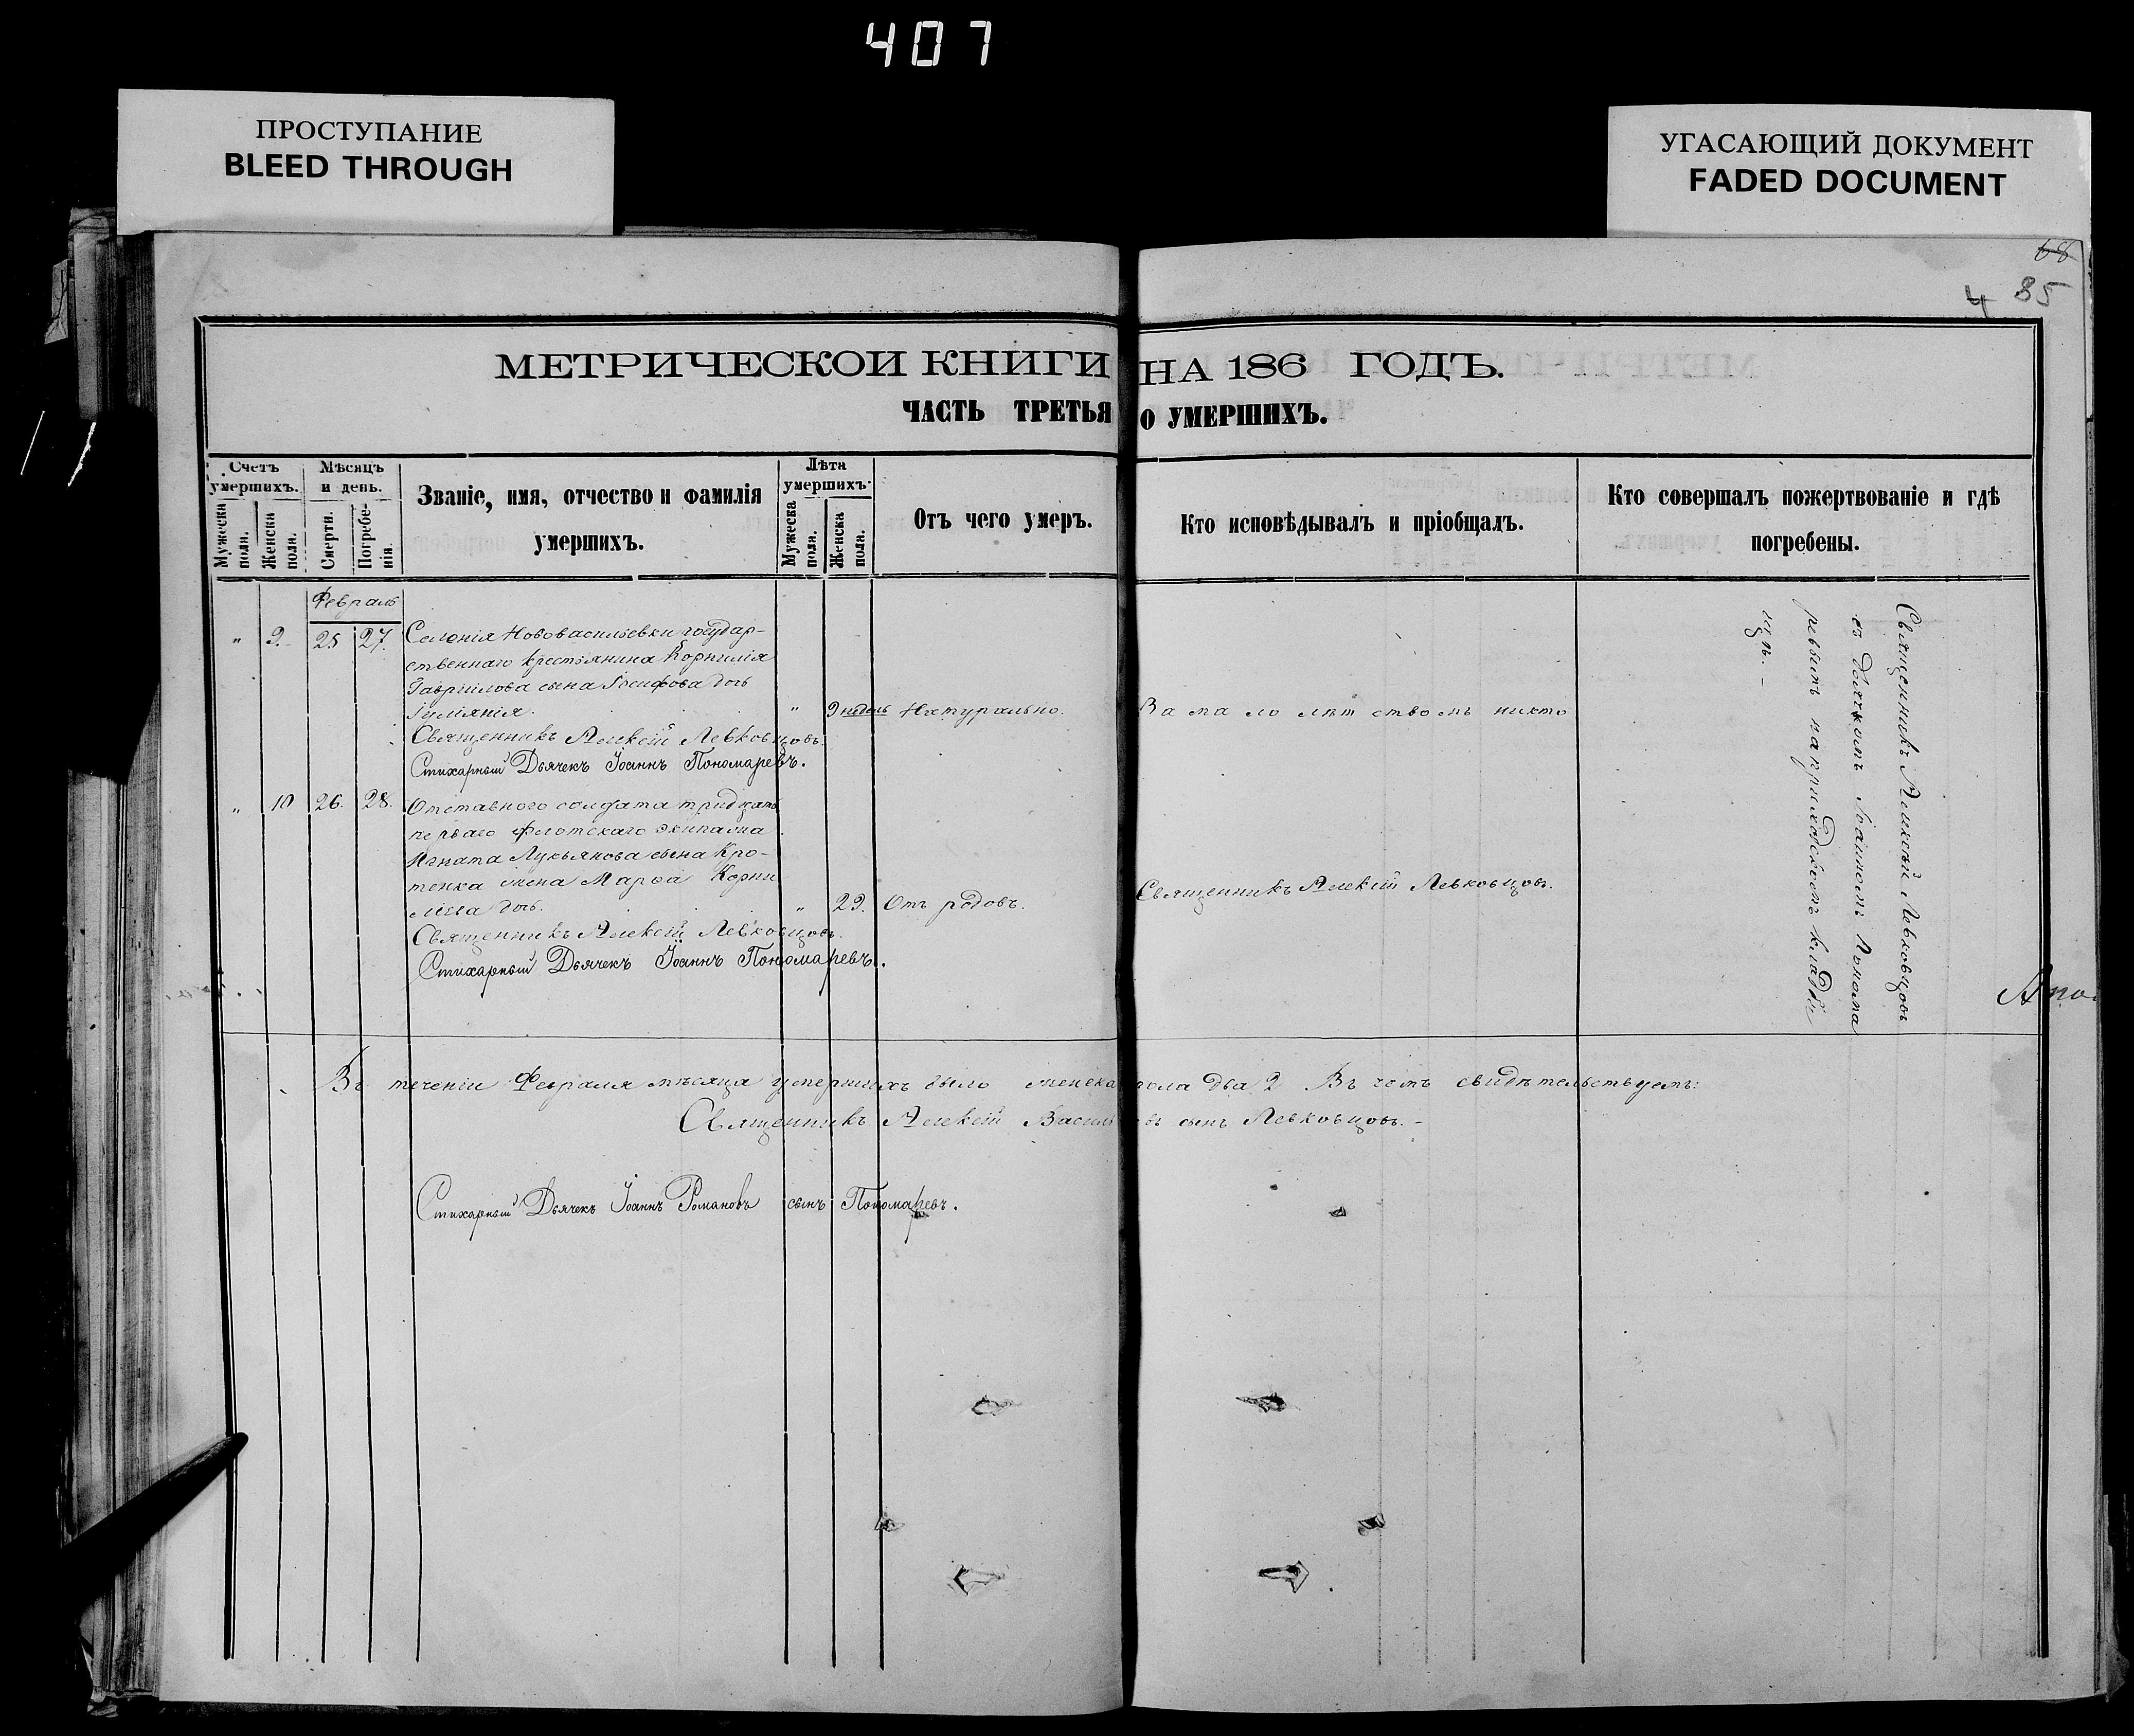 407
ПРОСТУПАНИЕ
BLEED THROUGH
УГАСАЮЩИЙ ДОКУМЕНТ
FADED DOCUMENT
68
4 85
МЕТРИЧЕСКОИ КНИГИ НА 186 ГОДЪ.
ЧАСТЬ ТРЕТЬЯ О УМЕРШИХЪ.
Счетъ умершихъ.
Мужеска пола.
Женска пола.
Мѣсяцъ и день.
Смерти.
Погребенія.
Званіе, имя, отчество и фамилія
умершихъ.
Лѣта умершихъ.
Мужеска пола.
Женска пола.
Отъ чего умеръ.
Кто исповѣдывалъ и пріобщалъ.
Кто совершалъ пожертвованіе и гдѣ
погребены.
Февраль
" 9. 25 27. Селенія Нововасильевки государ-
ственнаго крестьянина Корнилія
Гавріилова сына Іосифова дочь
Іуліянія. " 9 недель Натурально. За малолѣтствомъ никто
Священникъ Алексій Левковцовъ.
Стихарный Дьячекъ Іоаннъ Пономаревъ.
" 10 26. 28. Отставного солдата тридцать
перваго флотскаго экипажа
Игната Лукьянова сына Кро-
тенка жена Марѳа Корни
ліева дочь. " 29. Отъ родовъ. Священникъ Алексій Левковцовъ.
Священникъ Алексій Левковцовъ.
Стихарный Дьячекъ Іоаннъ Пономаревъ.
Священникъ Алексѣй Левковцовъ
съ дьячкомъ Іоанномъ Понома
ревымъ на приходскомъ кладби
щѣ. -
Въ теченіи Февраля мѣсяца умершихъ было женска пола два 2 Въ чемъ свидѣтельствуемъ:
Священникъ Алексій Васильевъ сынъ Левковцовъ. -
Стихарный Дьячекъ Іоаннъ Романовъ сынъ Пономаревъ.